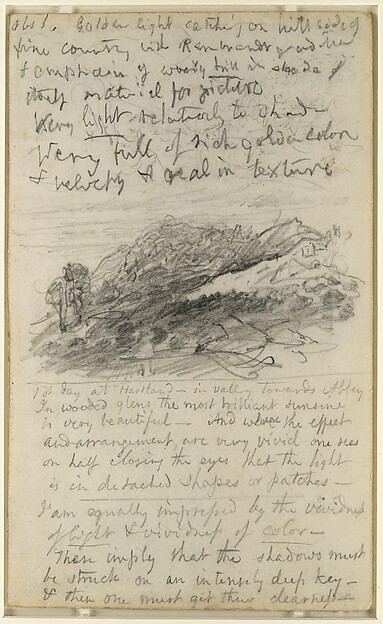 obs 1. Golden light catching on hill side of
fine country with Rembrandt
& emphasis of woody hill in shade
itself material for picture
Very light relatively to shade
Very full of rich golden color
& velvety & real in texture
1st day at Hartland — in valley towards Abbey
In wooded glens the most brilliant sunshine
is very beautiful — And where the effect
and arrangement are very vivid one sees
on half closing the eyes that the light
is in detached shapes or patches —
I am equally impressed by the vividness
of light & vividness of color —
These imply that the shadows must
be struck on an intensely deep key —
& then one must get their clearness —